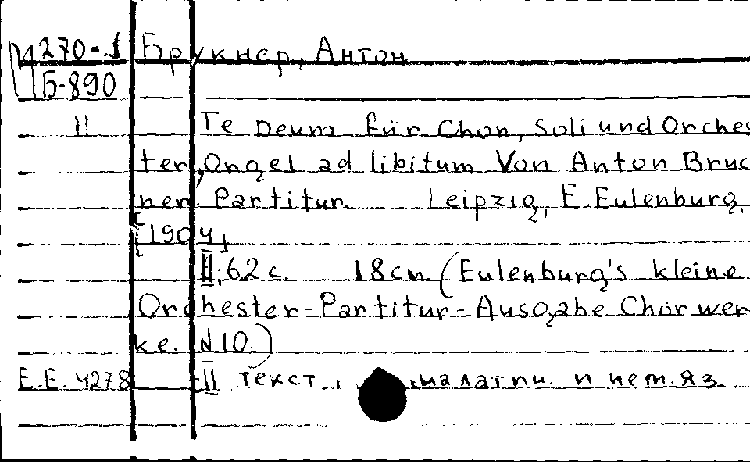 И270-1 Брукнер, Антон
Б-890
II Te Deum für Chor, Soli und Orches
ter, Orgel ad libitum Von Anton Bruc
ner Partitur. Leipzig, E. Eulenburg,
[1904]
II, 62 с. 18см (Eulenburg's kleine
Orchester-Partitur-Ausgabe Chorwer
ke. N10.)
E.E. 4278 II Текст. на латин. и нем. яз.